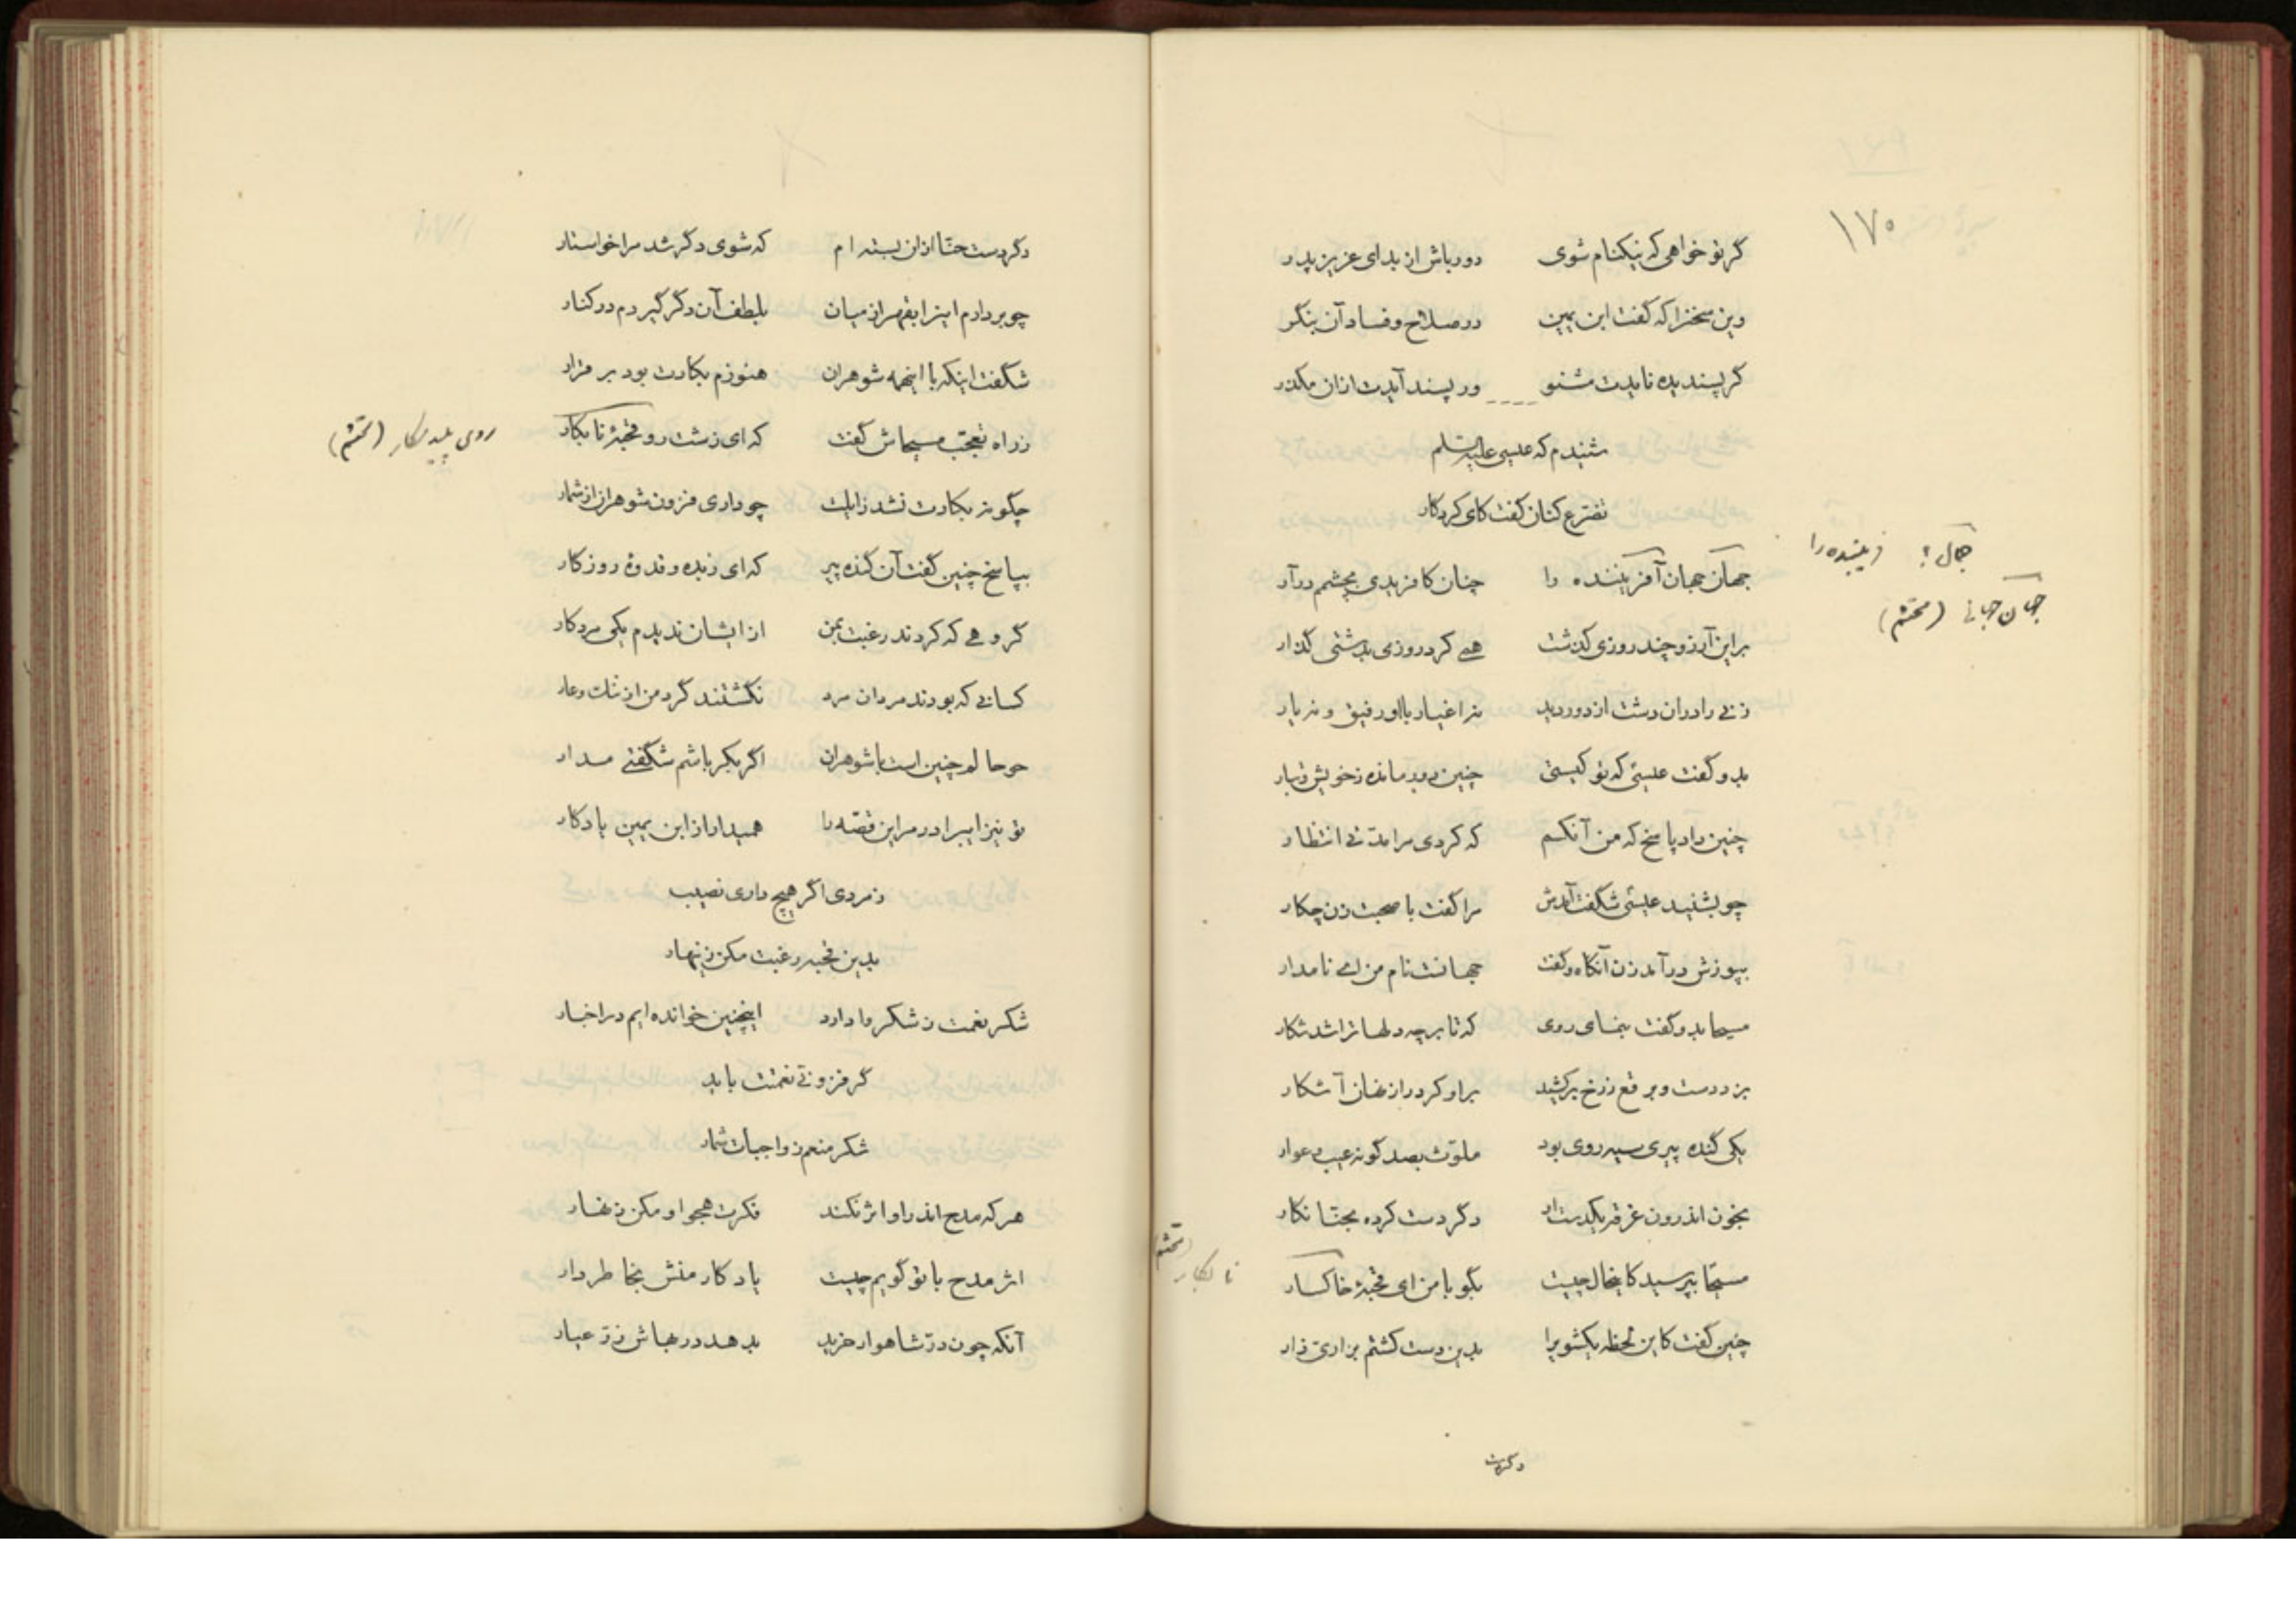 ۱۷۰
گر تو خواهی که نیکنام شوی دور باش از بد ای عزیز پدر
وین سخنرا که گفت ابن یمین در صلاح و فساد آن بنگر
گر پسندیده نایدت مشنو ور پسند آیدت ازان مگذر
شنیدم که عیسی علیه السلم
تضرع کنان گفت کای کردگار
جمال جهان آفریننده را چنان کافریدی بچشم در آر
جمال؟ فریبنده را
جهان جهانی (محتشم)
براین آرزو چند روزی گذشت همی کرد روزی بدشتی گذار
زنی را دران دشت از دور دید نه اغیار با او رفیق و نه یار
بدو گفت عیسی که تو کیستی چنین دور مانده ز خویش و تبار
چنین داد پاسخ که من آنکسم که کردی مرا مدتی انتظار
چو بشنید عیسی شگفت آمدش مرا گفت با صحبت زن چکار
بپوزش در آمد زن آنگاه و گفت جهانست نام من ای نامدار
مسیحا بدو گفت بنمای روی که تا بر چه دلها ترا شد شکار
بزد دست و برقع ز رخ برکشید براو کرد راز نهان آشکار
یکی گنده پیری سیه روی بود ملوث بصد گونه عیب و عوار
بخون اندرون غرقه یکدست او دگر دست کرده بحنا نگار
مسیحا بپرسید کاینحال چیست بگو با من ای قحبهٔ خاکسار
نابکار (محتشم)
چنین گفت کاین لحظه یکشویرا بدین دست کشتم بزاری زار
دگردست
دگر دست حنا ازان بسته ام که شوی دگر شد مرا خواستار
چو بردارم اینرا بقهر از میان بلطف آن دگر گیردم در کنار
شگفت اینکه با اینهمه شوهران هنوزم بکارت بود بر قرار
ز راه تعجب مسیحاش گفت که ای زشت رو قحبهٔ نابکار
روی پلید (محتشم)
چگونه بکارت نشد زایلت چو داری فزون شوهران از شمار
بپاسخ چنین گفت آن گنده پیر که ای زبده و قدوهٔ روزگار
گروهی که کردند رغبت بمن از ایشان ندیدم یکی مرد کار
کسانی که بودند مردان مرد نگشتند گرد من از ننگ و عار
چو حالم چنین است با شوهران اگر بکر باشم شگفتی مدار
تو نیز ای برادر مر این قصه را همیدار از ابن یمین یادگار
ز مردی اگر هیچ داری نصیب
بدین قحبه رغبت مکن زینهار
شکر نعمت ز شکر وا دارد اینچنین خوانده ایم در اخبار
گر فزونی نعمتت باید
شکر منعم ز واجبات شمار
هر که مدح اندر او اثر نکند فکرت هجو او مکن زنهار
اثر مدح با تو گویم چیست یادگار منش بخاطر دار
آنکه چون در شاهوار خرید بدهد در بهاش زر عیار